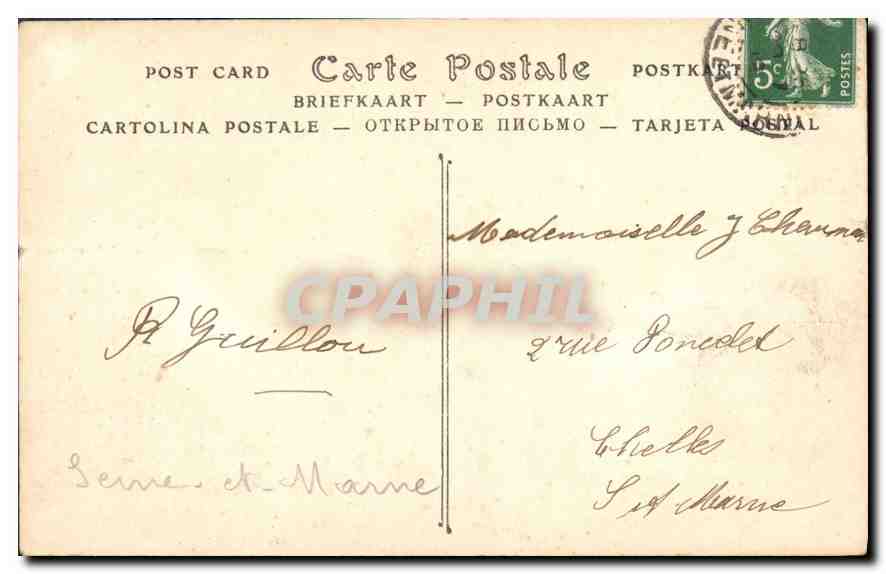 POST CARD Carte Postale POSTKART
BRIEFKAART — POSTKAART
CARTOLINA POSTALE — ОТКРЫТОЕ ПИСЬМО — TARJETA POSTAL
5c
POSTES
Mademoiselle J
CPAPHIL
R Guillou
2 rue
Chelles
S et Marne
Seine-et-Marne